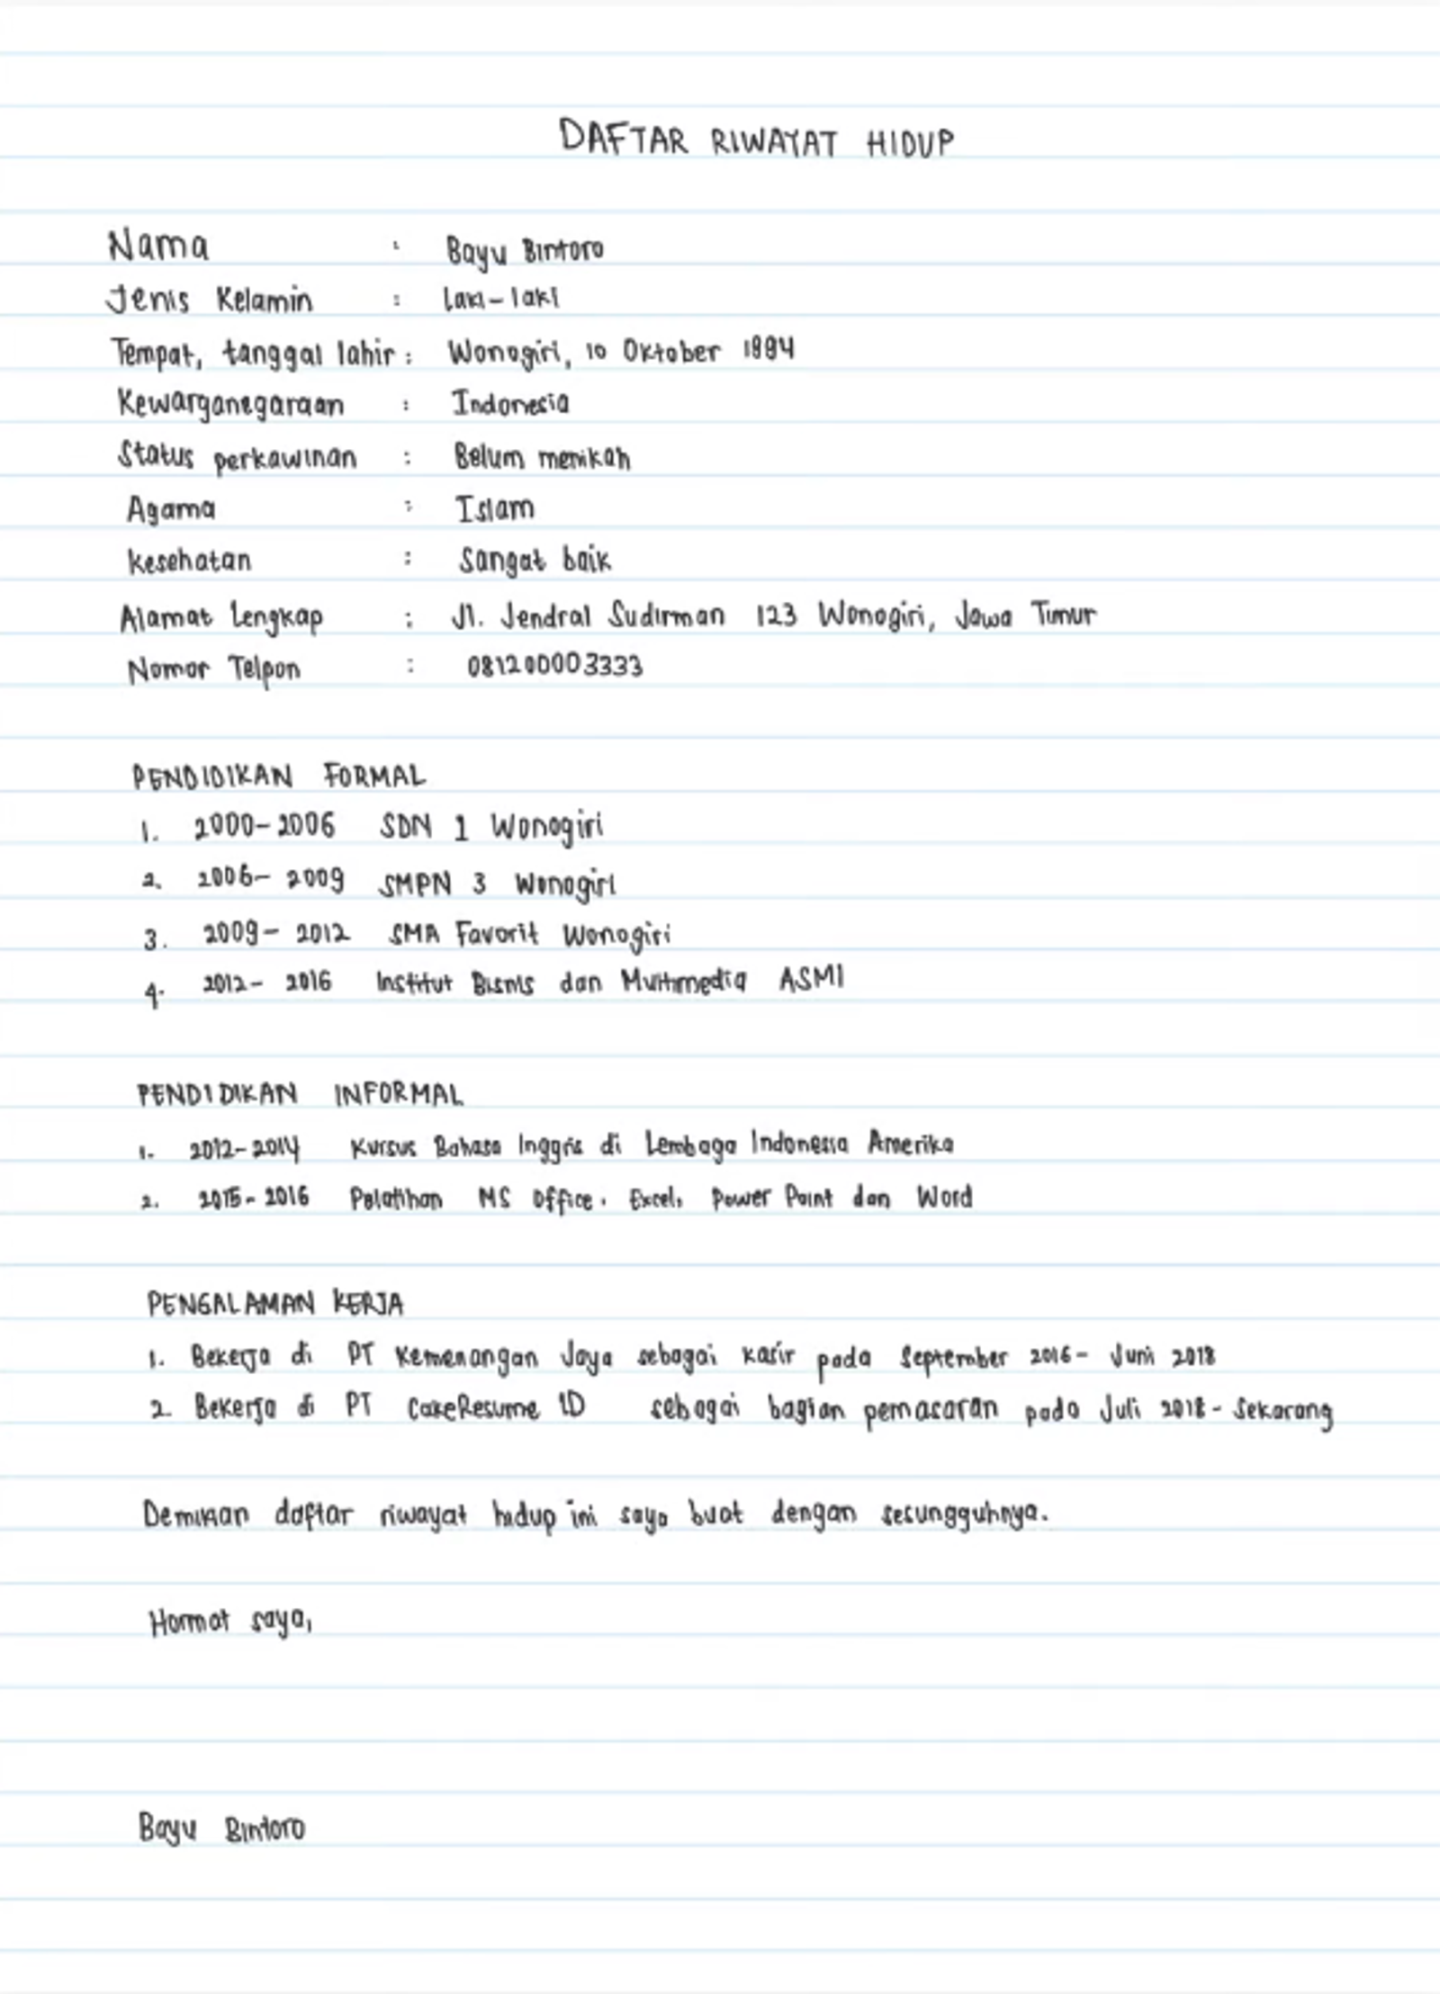 DAFTAR RIWAYAT HIDUP
Nama : Bayu Bintoro
Jenis Kelamin : Laki-laki
Tempat, tanggal lahir : Wonogiri, 10 Oktober 1994
Kewarganegaraan : Indonesia
Status perkawinan : Belum menikah
Agama : Islam
kesehatan : Sangat baik
Alamat Lengkap : Jl. Jendral Sudirman 123 Wonogiri, Jawa Timur
Nomor Telpon : 081200003333
PENDIDIKAN FORMAL
1. 2000-2006 SDN 1 Wonogiri
2. 2006-2009 SMPN 3 Wonogiri
3. 2009-2012 SMA Favorit Wonogiri
4. 2012-2016 Institut Bisnis dan Multimedia ASMI
PENDIDIKAN INFORMAL
1. 2012-2014 Kursus Bahasa Inggris di Lembaga Indonesia Amerika
2. 2015-2016 Pelatihan MS Office. Excel, Power Point dan Word
PENGALAMAN KERJA
1. Bekerja di PT Kemenangan Jaya sebagai kasir pada September 2016- Juni 2018
2. Bekerja di PT CakeResume ID sebagai bagian pemasaran pada Juli 2018- Sekarang
Demikian daftar riwayat hidup ini saya buat dengan sesungguhnya.
Hormat saya,
Bayu Bintoro